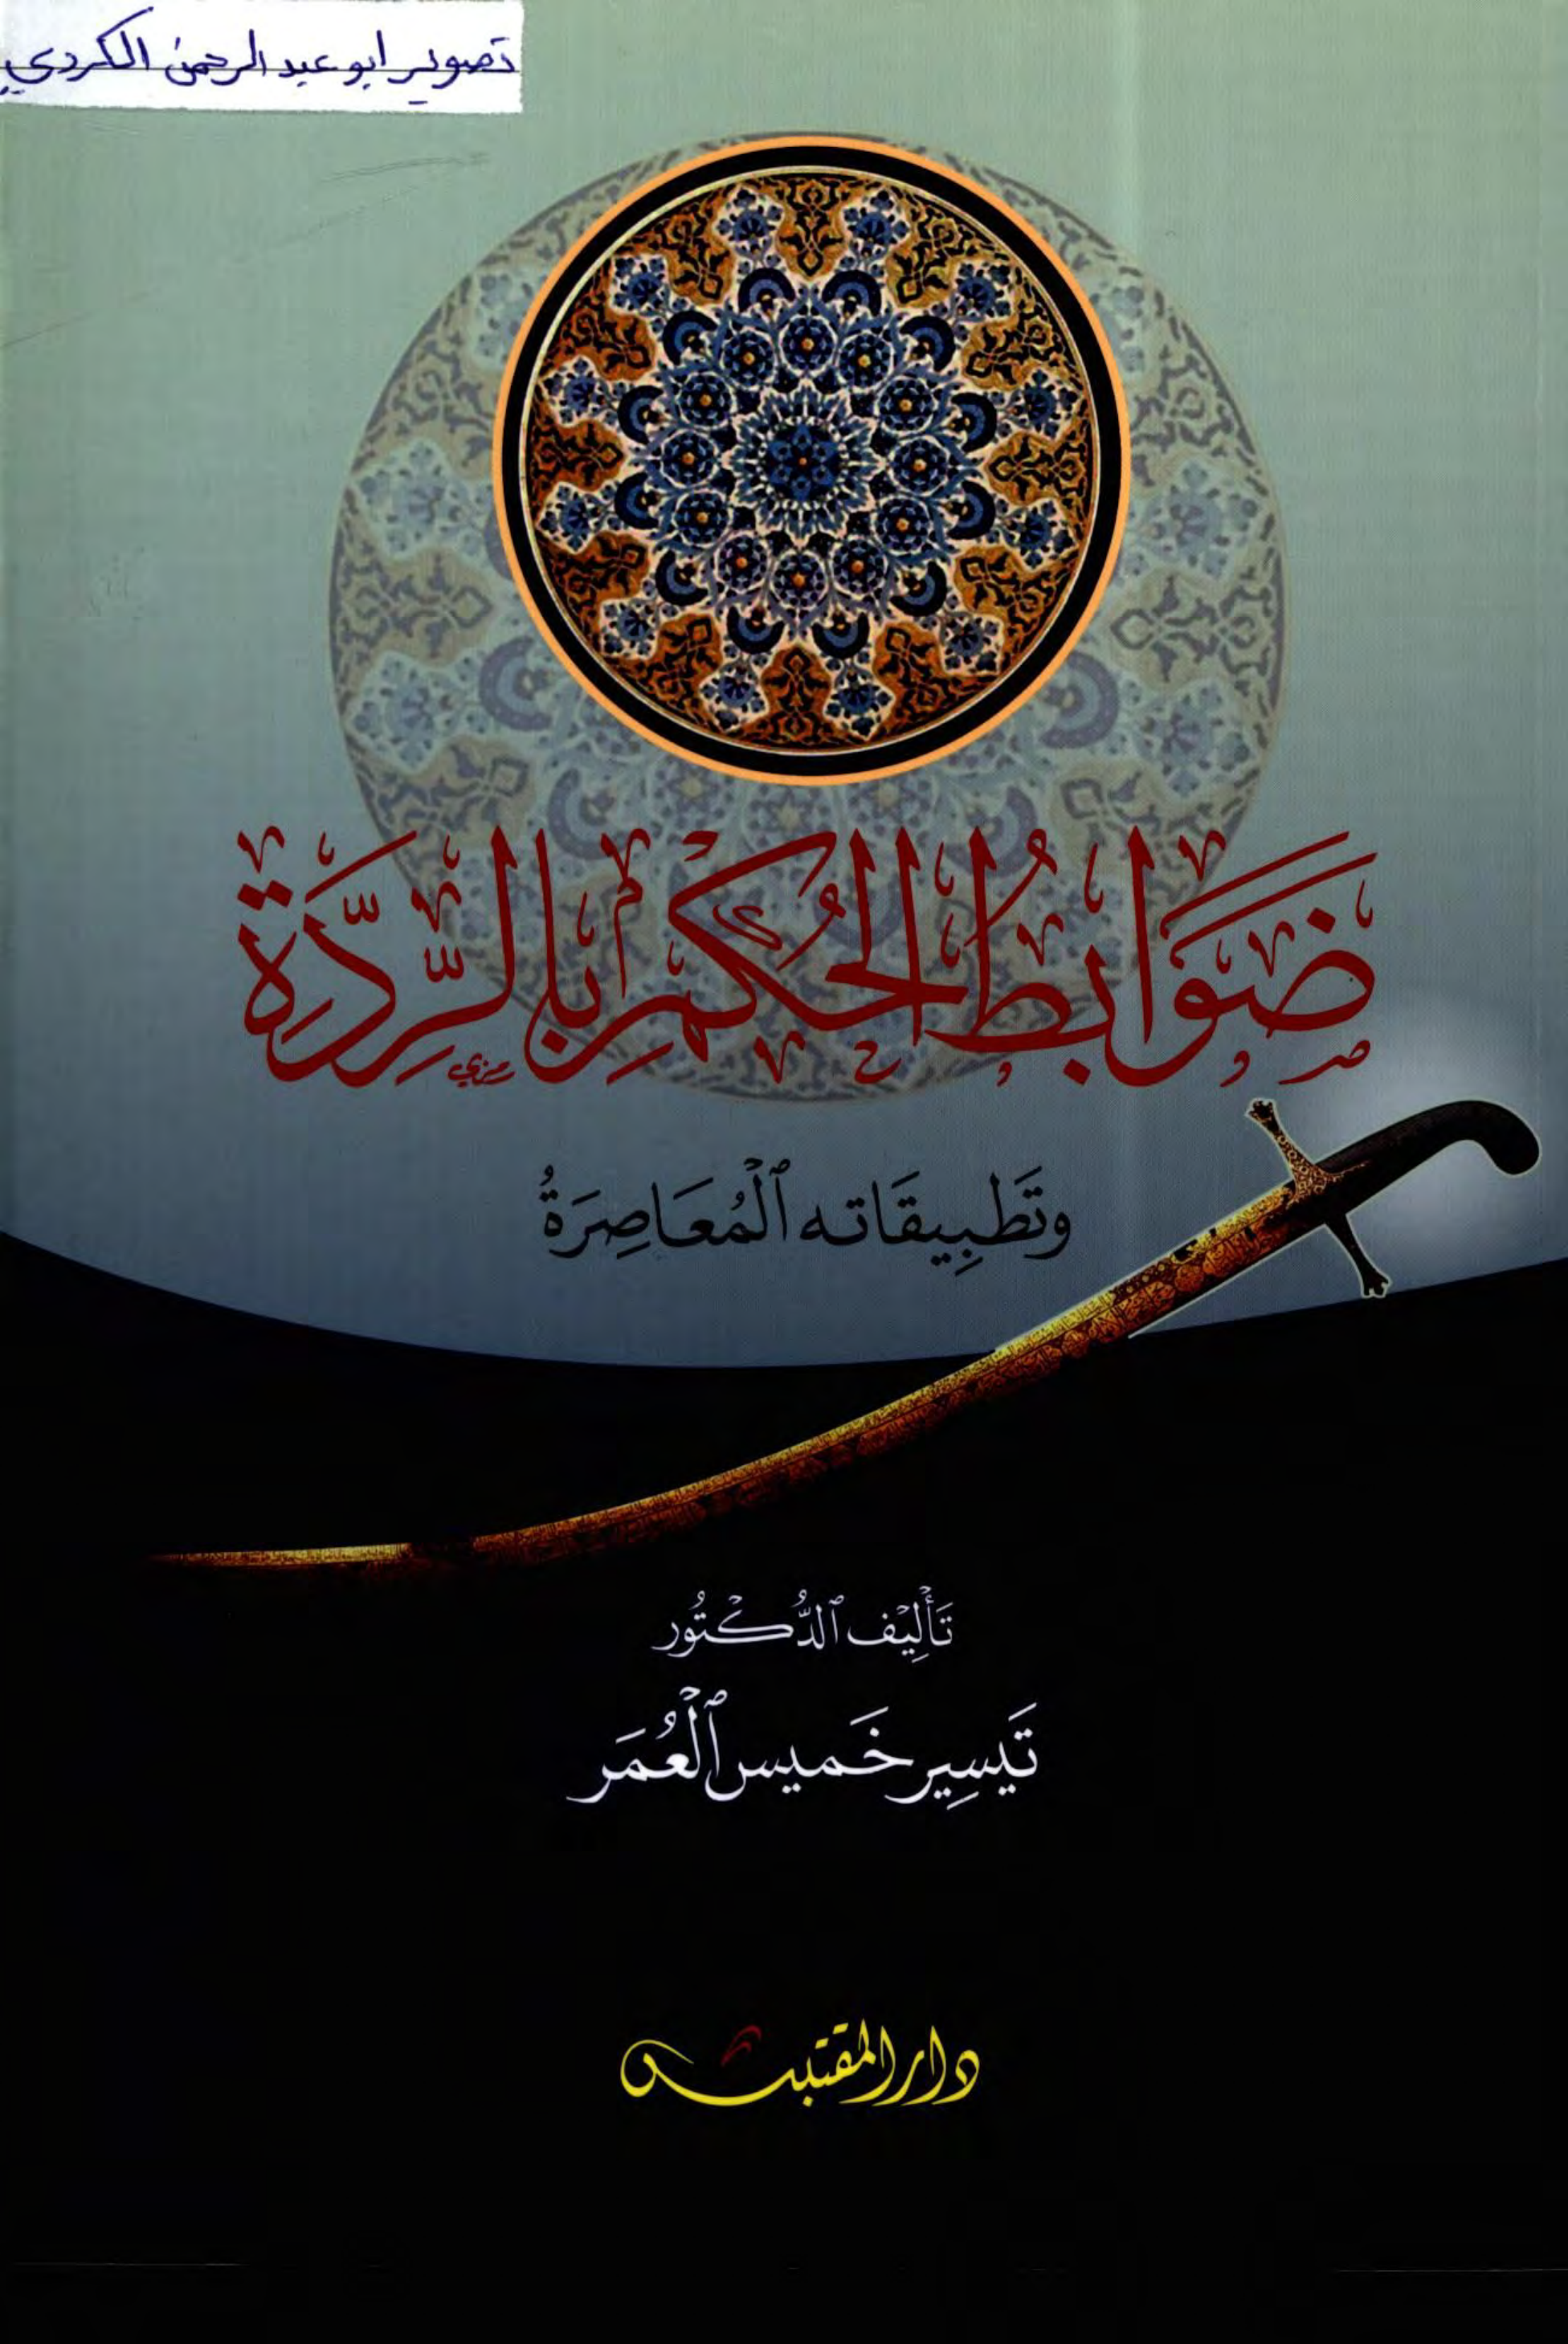 تصوير ابو عبد الرحمن الكردي
ضَوَابِطُ الحُكْمِ بِالرِّدَّةِ
وتَطبِيقَاته ٱلْمُعَاصِرَةُ
تَأْلِيْف ٱلدُّكْتُور
تَيسِير خَميس ٱلْعُمَر
دار المقتبس